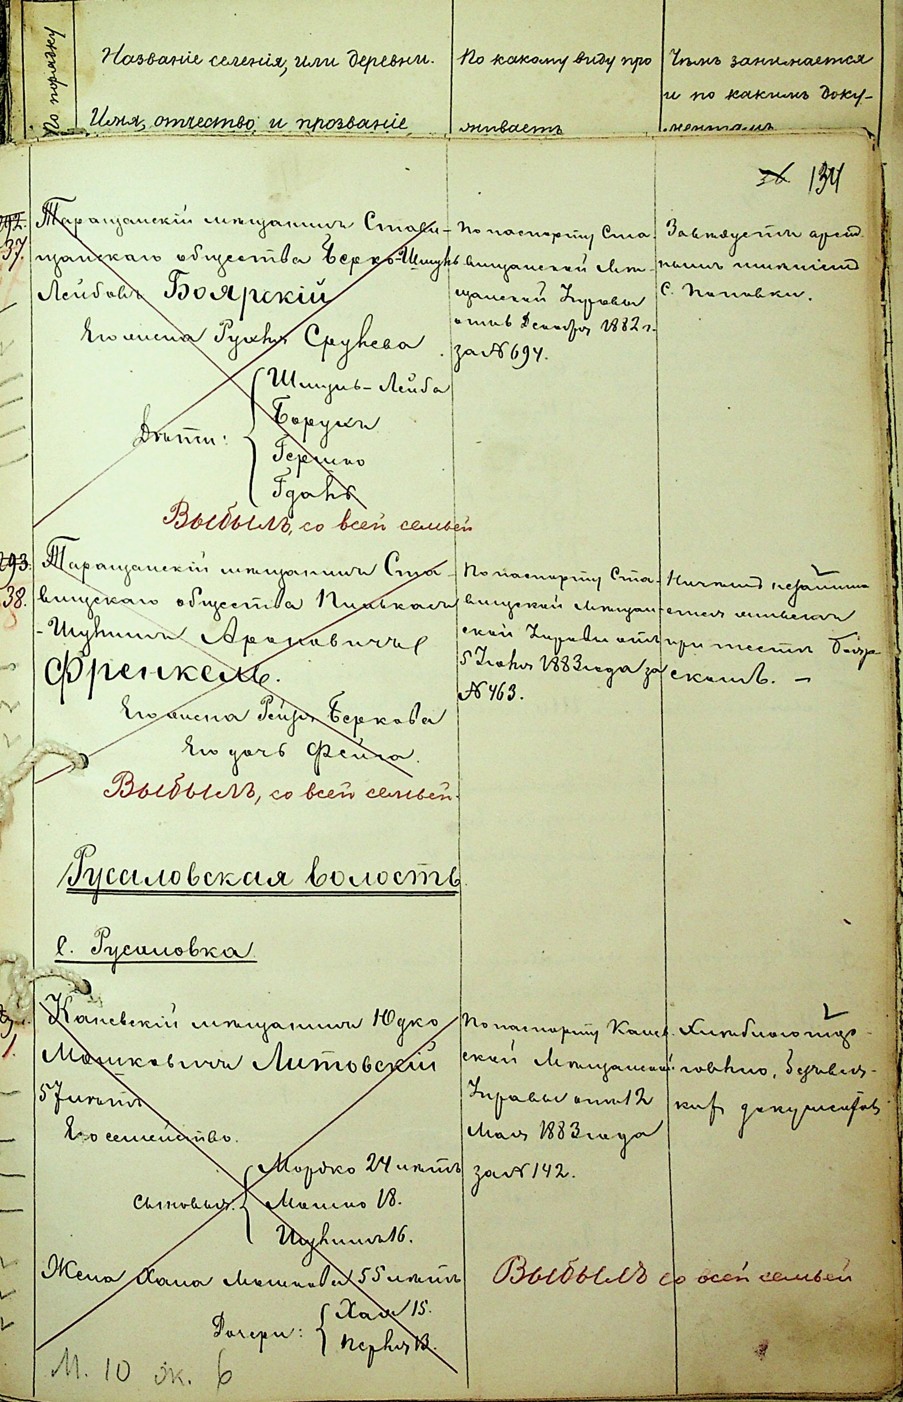 По порядку
Названіе селенія, или деревни.
Имя, отчество, и прозваніе
По какому виду про
живаетъ
Чѣмъ занимается
и по какимъ доку-
ментамъ
134
292.
37.
Таращанскій мѣщанинъ Стави-
щанскаго общества Берко-Шмунь
Лейбовъ Боярскій
Его жена Рухля Срулева
Дѣти:
Шмунь-Лейба
Борухъ
Гершко
Выбылъ, со всей семьей
По паспорту Ста-
вищанской Мѣ-
щанской Управы
отъ 6 Декабря 1882 г.
за № 694.
Завѣдуетъ аренд.
с. Поповки.
293.
38.
Таращанскій мѣщанинъ Ста-
вищскаго общества Пинькасъ
Ароновичъ
Френкель.
Его жена Рейзя Беркова
Его дочь Фейга.
Выбылъ, со всей семьей.
По паспорту Ста-
вищской мѣщан-
ской Управы отъ
5 Іюня 1883 года за
№ 463.
Ничемъ не занима
при тестѣ Бояр-
скомъ. —
Русаловская волость
с. Русаловка
1.
Каневскій мѣщанинъ Юдко
Мошковичъ Литовскій
57 лѣтъ
Его семейство.
Сыновья:
Мордко 24 лѣтъ
Мошко 18.
16.
Жена Хана Мошкова 55 лѣтъ
Дочери:
Хая 15.
13.
По паспорту Канев-
ской Мѣщанской
Управы отъ 12
Мая 1883 года
за № 142.
документовъ
Выбылъ со всей семьей
М. 10 ж. 6